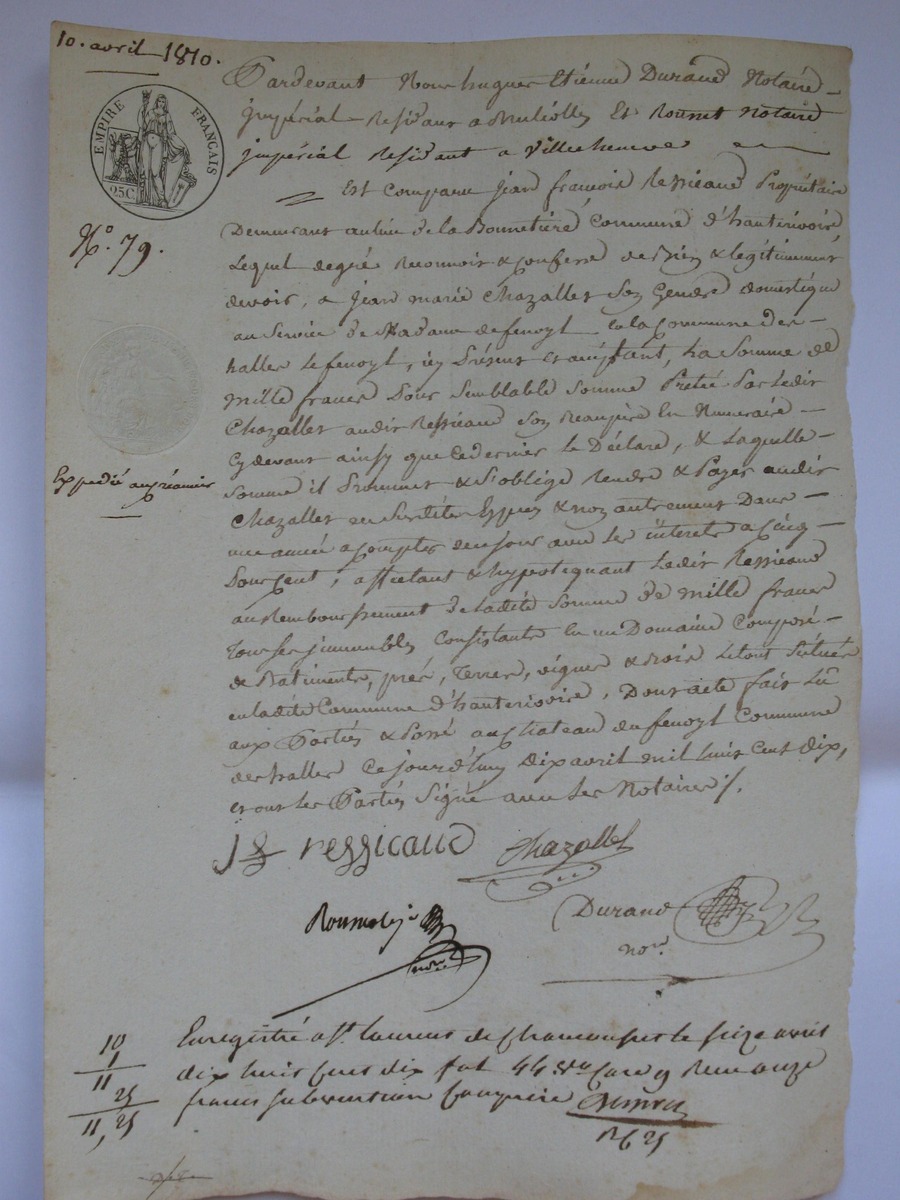 10. avril 1810.
EMPIRE FRANÇAIS
25C
N.° 79.
Expedié au créancier
Pardevant Nous hugues Etienne Durand Notaire
jmpérial Residant a Et Rounat Notaire
jmpérial Residant a Villechenève
Est Comparu jean francois Ressicaud Propriétaire
Demeurant au lieu de la Bonnetiere Commune d'hauterivoire,
Lequel de gré Reconnoit & Confesse de Bien & legitimement
devoir, a jean marie Chazallet Son Gendre domestique
au Service de Madame de fenoyl en la Commune des
halles le fenoyl, icy Présent et acceptant, La Somme de
mille francs Pour Semblable Somme Pretée Par ledit
Chazallet audit Ressicaud Son Beaupère En Numeraire
Cydevant ainsy que Ce dernier le Déclare, & Laquelle
Somme il Promet & S'oblige Rendre & Payer audit
Chazallet en Espèces & non autrement Dans
une année a Compter de ce jour avec les intérets a Cinq
Pour Cent, affectant & hypotequant Ledit Ressicaud
au Remboursement de ladite Somme de mille francs
Tous ses jmmeubles Consistants En un Domaine Composé
de Batiments, prés, Terres, vignes & Bois le tout Situés
en ladite Commune d'hauterivoire, Dont acte fait Lû
aux Parties & Passé au Chateau du fenoyl Commune
des halles Ce jourd'huy Dix avril mil huit Cent dix,
et ont les Parties Signé avec les Notaires /.
ressicaud Chazallet
Durand
no.re
no.re
10
1
11
25
11, 25
Enregistré a St. laurent de Chamousset le seize avril
dix huit Cent dix fol 44 Reçu onze
francs subvention Comprise